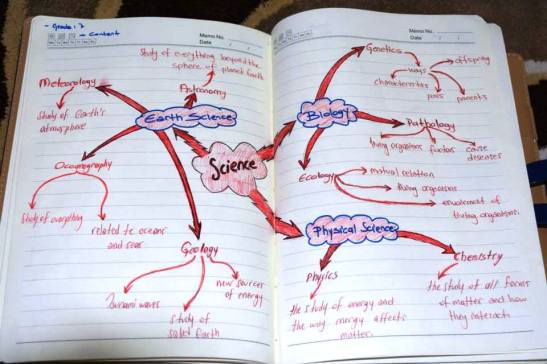 - Grade: 7
- Content
Memo No.
Date / /
Study of everything beyond the
sphere of planet Earth
Meteorology
Astronomy
Study of Earth's
atmosphere
Earth Science
Science
Oceanography
Study of everything
related to oceans
and seas
Geology
Tsunami waves
study of
solid Earth
new sources
of energy
Memo No.
Date / /
Genetics
ways
offspring
characteristics
pass
parents
Biology
Pathology
living organisms
factors
cause
diseases
Ecology
mutual relation
living organisms
environment of
living organisms.
Physical Science
Physics
the study of energy and
the way energy affects
matter.
Chemistry
the study of all forms
of matter and how
they interact.